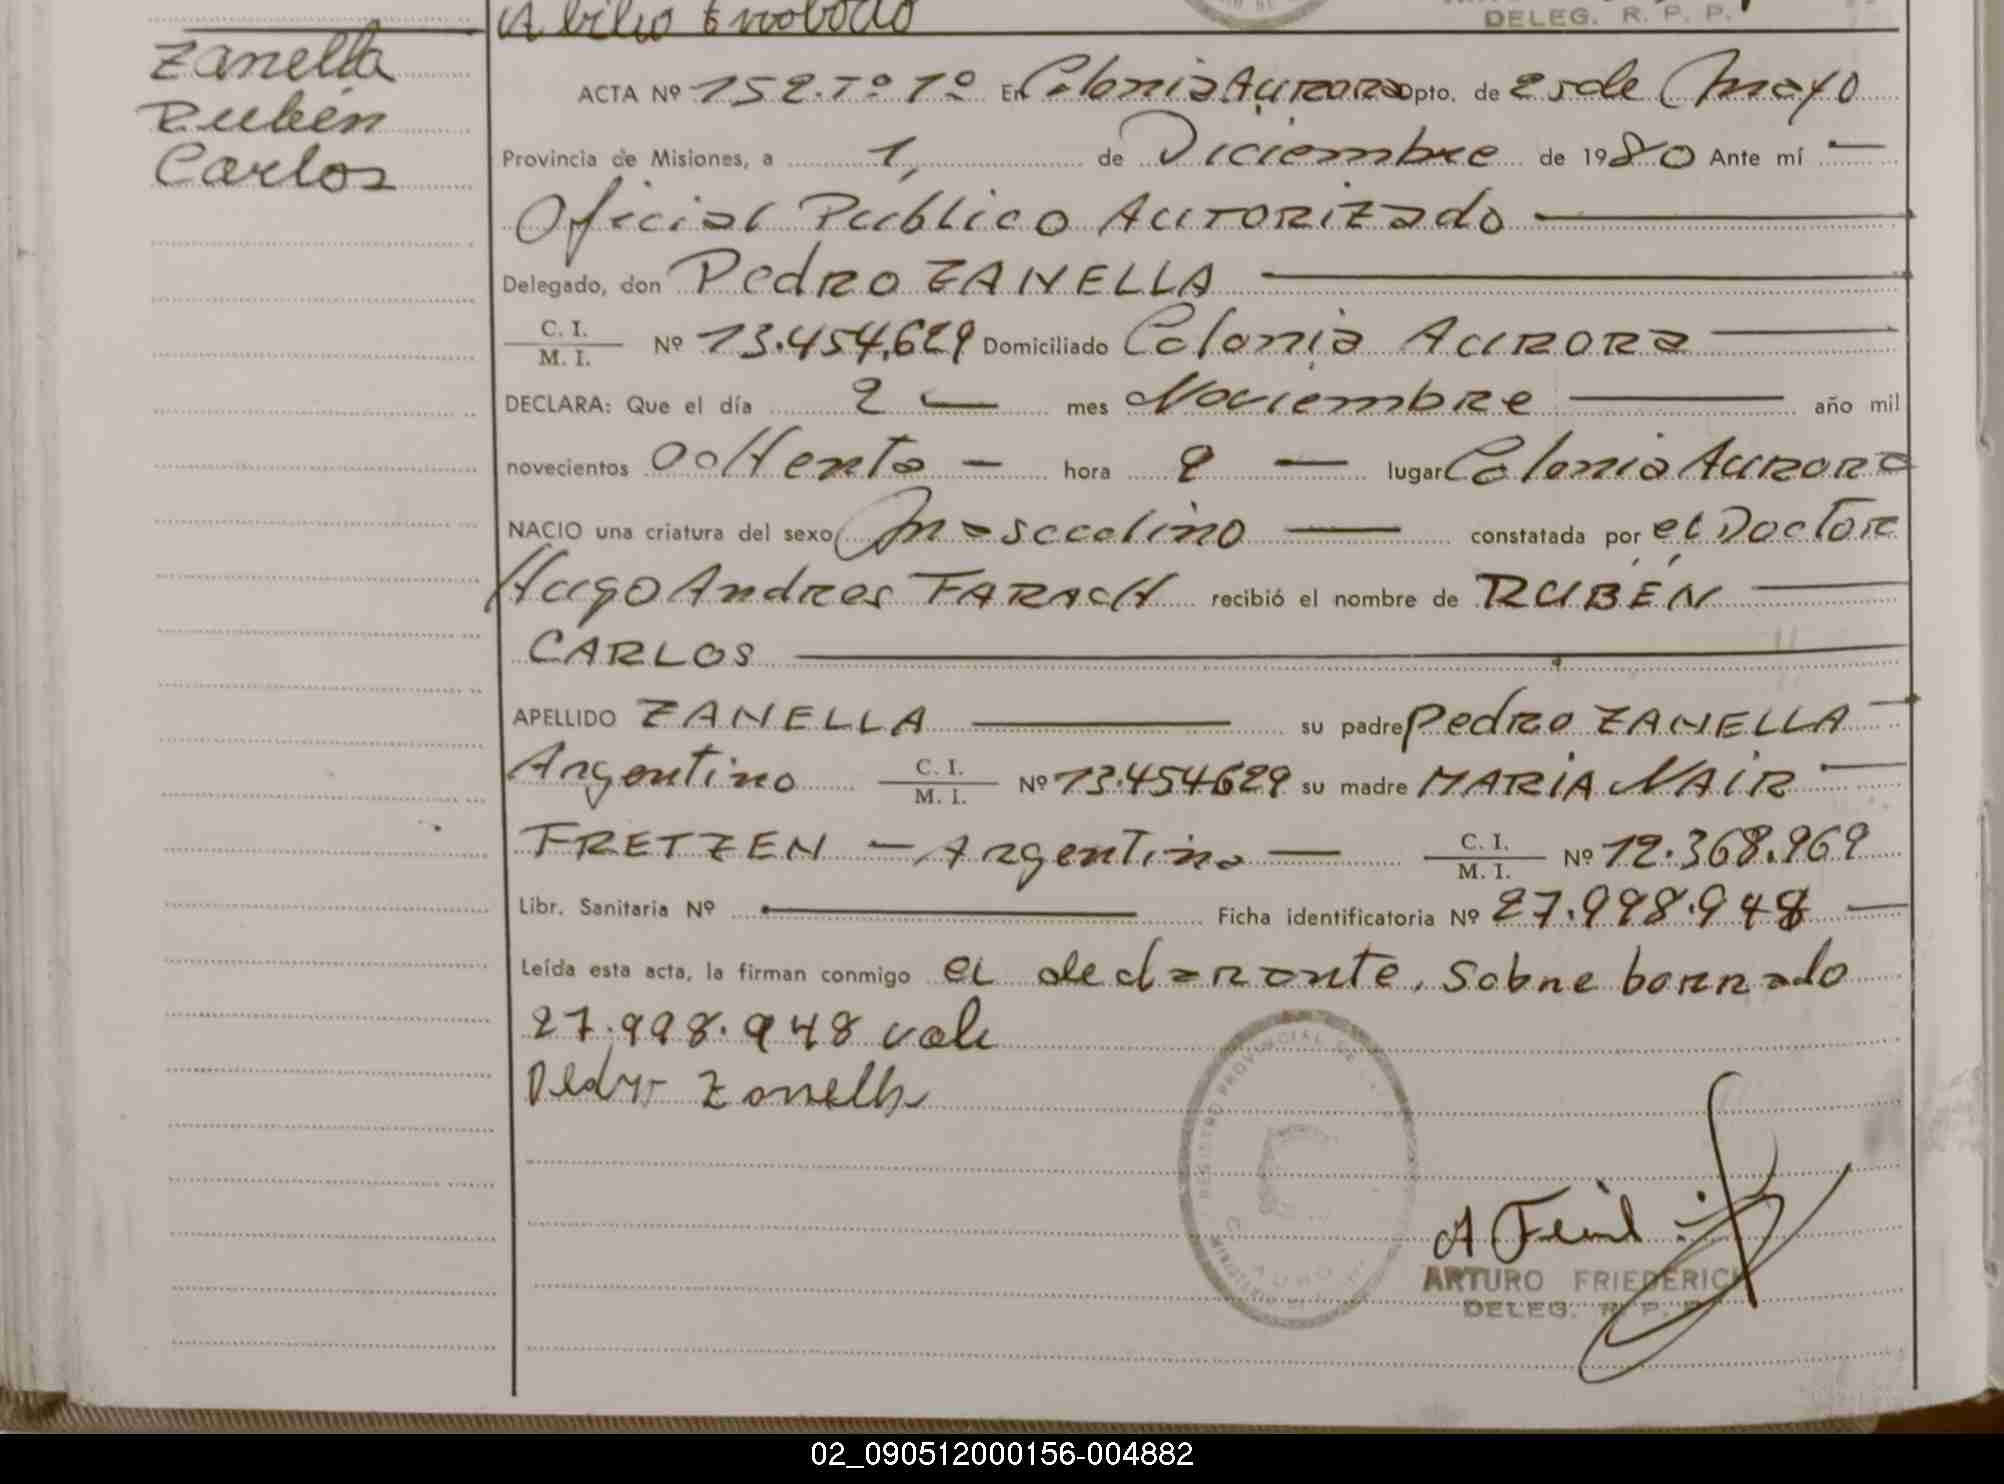 Abilio
DELEG. R. P. P.
Zanella
Rubén
Carlos
ACTA Nº 152. Tº 1º En Colonia Aurora Dpto. de 25 de Mayo
Provincia de Misiones, a 1, de Diciembre de 1980 Ante mí —
Oficial Publico Autorizado
Delegado, don Pedro ZANELLA
C. I. / M. I. Nº 13.454.629 Domiciliado Colonia Aurora
DECLARA: Que el día 2 — mes Noviembre — año mil
novecientos ochenta — hora 2 — lugar Colonia Aurora
NACIO una criatura del sexo Masculino — constatada por el Doctor
Hugo Andres FARACH recibió el nombre de RUBÉN
CARLOS
APELLIDO ZANELLA — su padre Pedro ZANELLA —
Argentino C. I. / M. I. Nº 13.454629 su madre MARIA NAIR —
FRETZEN — Argentina — C. I. / M. I. Nº 12.368.969
Libr. Sanitaria Nº — Ficha identificatoria Nº 27.998.948 —
Leída esta acta, la firman conmigo el declarante. Sobre borrado
27.998.948 vale
Pedro Zanella
REGISTRO PROVINCIAL DE
ARTURO FRIEDERICH
DELEG. R. P. P.
02_090512000156-004882